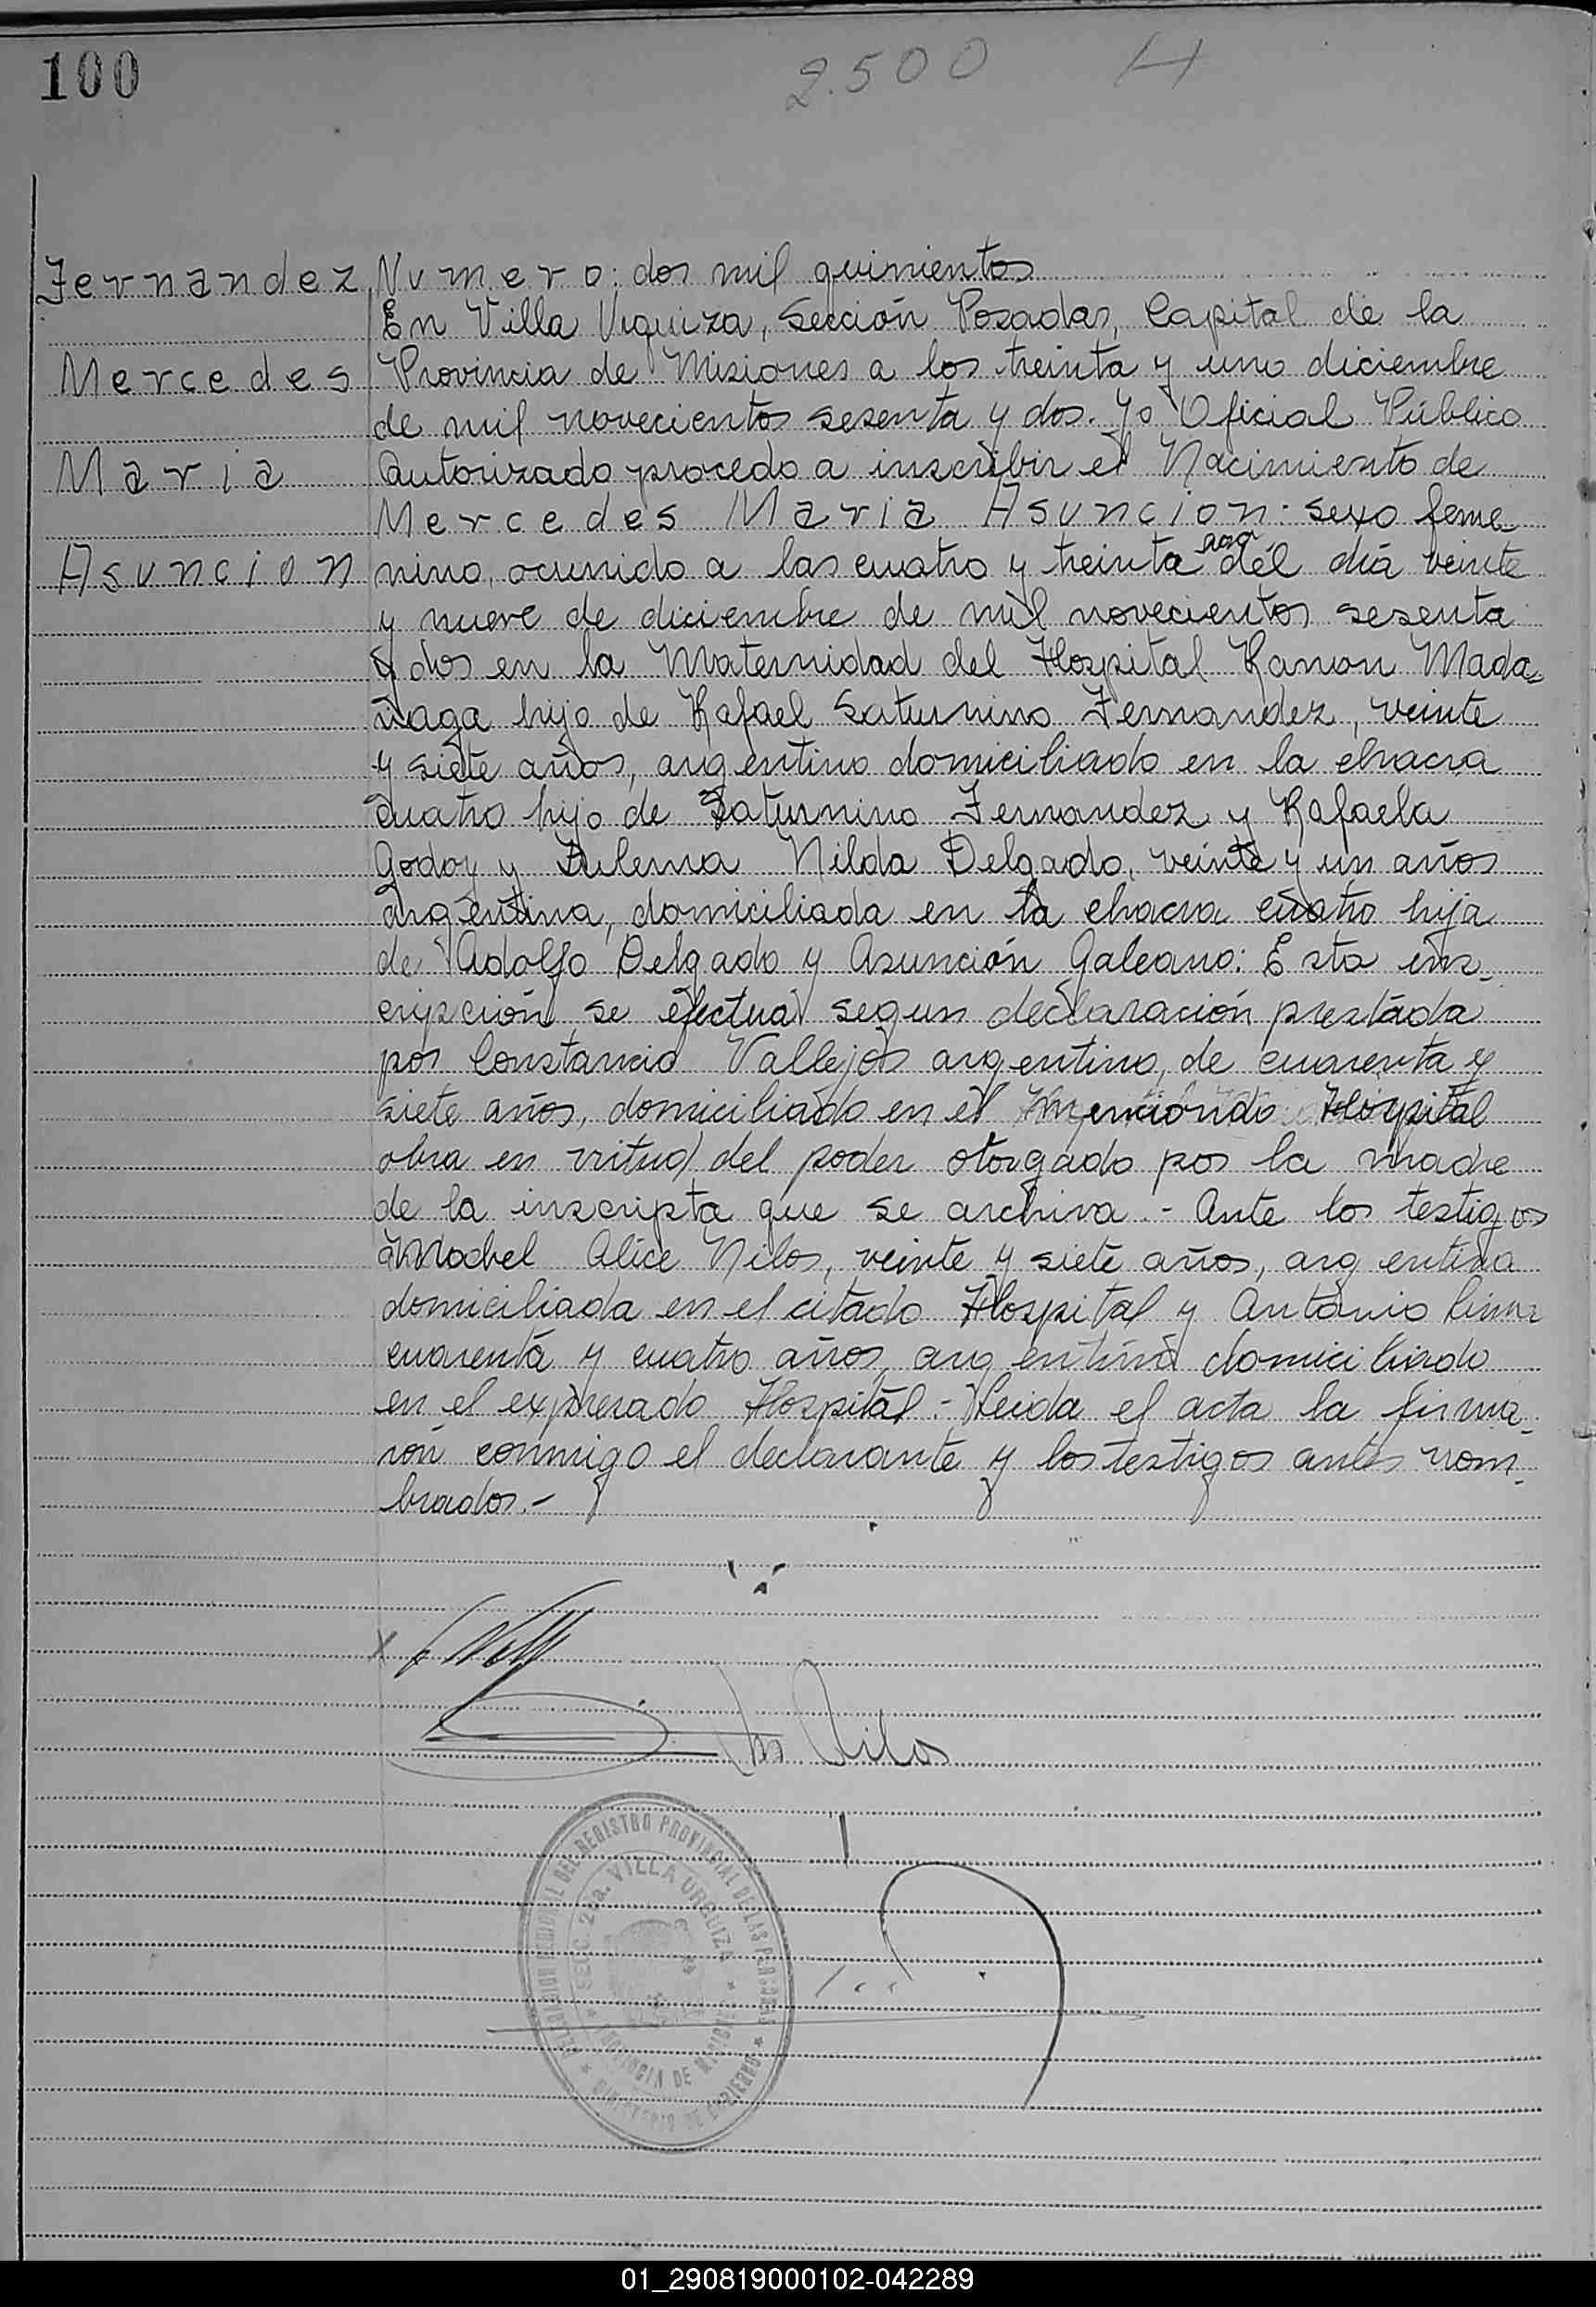 100
2.500 H
Fernandez
Mercedes
Maria
Asuncion
Numero: dos mil quinientos
En Villa Urquiza, Sección Posadas, Capital de la
Provincia de Misiones a los treinta y uno diciembre
de mil novecientos sesenta y dos. Yo Oficial Público
Autorizado procedo a inscribir el Nacimiento de
Mercedes Maria Asuncion: sexo feme-
nino, ocurrido a las cuatro y treinta del día veinte
y nueve de diciembre de mil novecientos sesenta
y dos en la Maternidad del Hospital Ramon Mada-
riaga hijo de Rafael Saturnino Fernandez, veinte
y siete años, argentino domiciliado en la chacra
cuatro hijo de Saturnino Fernandez y Rafaela
Godoy y Zulema Nilda Delgado, veinte y un años
argentina, domiciliada en la chacra cuatro hija
de Adolfo Delgado y Asunción Galeano: Esta ins-
cripción se efectua segun declaración prestada
por Constancio Vallejos argentino, de cuarenta y
siete años, domiciliado en el menciondo Hospital
obra en vritud del poder otorgado por la madre
de la inscripta que se archiva.- Ante los testigos
Mabel Alice Nilos, veinte y siete años, argentina
domiciliada en el citado Hospital y Antonio
cuarenta y cuatro años, argentina domiciliado
en el expresado Hospital.- Leida el acta la firma-
rón conmigo el declarante y los testigos antes nom-
brados.-
Nilos
DELEGACION REGIONAL DEL REGISTRO PROVINCIAL DE LAS PERSONAS
SECC. 2da. VILLA URQUIZA
PROVINCIA DE MISIONES
MINISTERIO DE GOBIERNO
01_290819000102-042289